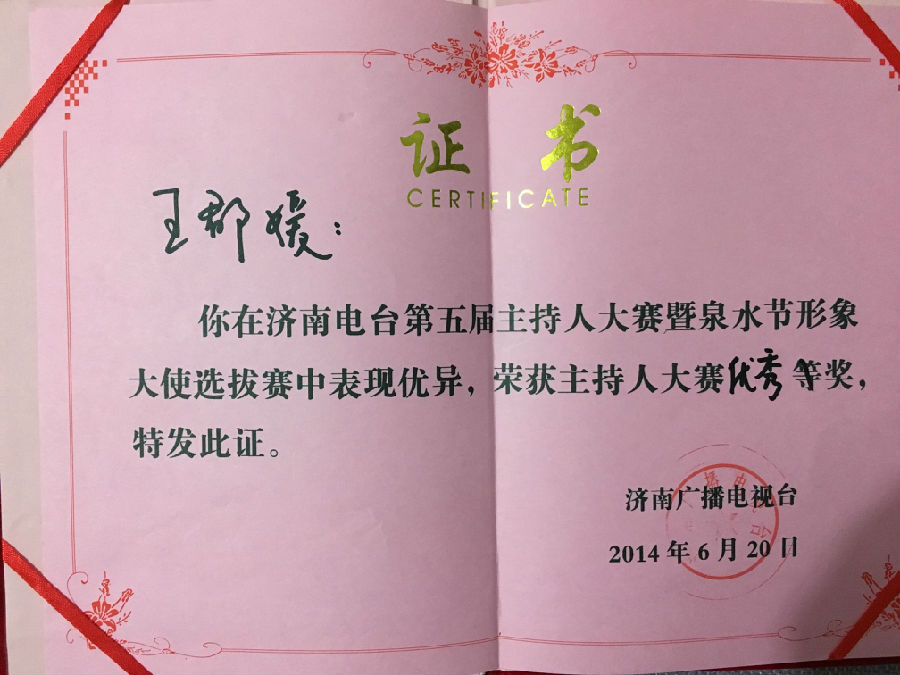 证书
CERTIFICATE
王郡媛：
你在济南电台第五届主持人大赛暨泉水节形象
大使选拔赛中表现优异，荣获主持人大赛优秀等奖，
特发此证。
济南广播电视台
2014年6月20日